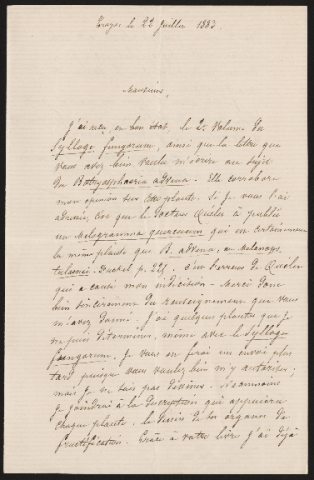 Troyes le 22 Juillet 1883.
Monsieur,
J'ai reçu, en bon état, le 2e Volume du
Sylloge fungorum, ainsi que la lettre que
vous avez bien voulu m'écrire au sujet
du Botryosphaeria advena. Elle corrobore
mon opinion sur cette plante. Si je vous l'ai
adressée, c'est que le Docteur Quélet a publié
un Melogramma quercuum qui est certainement
la même plante que B. advena, ou Melanops
tulasnei - Fuckel p. 225. C'est l'erreur de Quélet
qui a causé mon indécision - Merci donc
bien sincèrement du renseignement que vous
m'avez donné. J'ai quelques plantes que je
ne puis déterminer, même avec le Sylloge
fungorum. Je vous en ferai un envoi plus
tard, puisque vous voulez bien m'y autoriser;
mais je ne suis pas
je joindrai à la description qui appuiera
chaque plante, le dessin de les organes de
fructification. Grâce à votre livre j'ai déjà